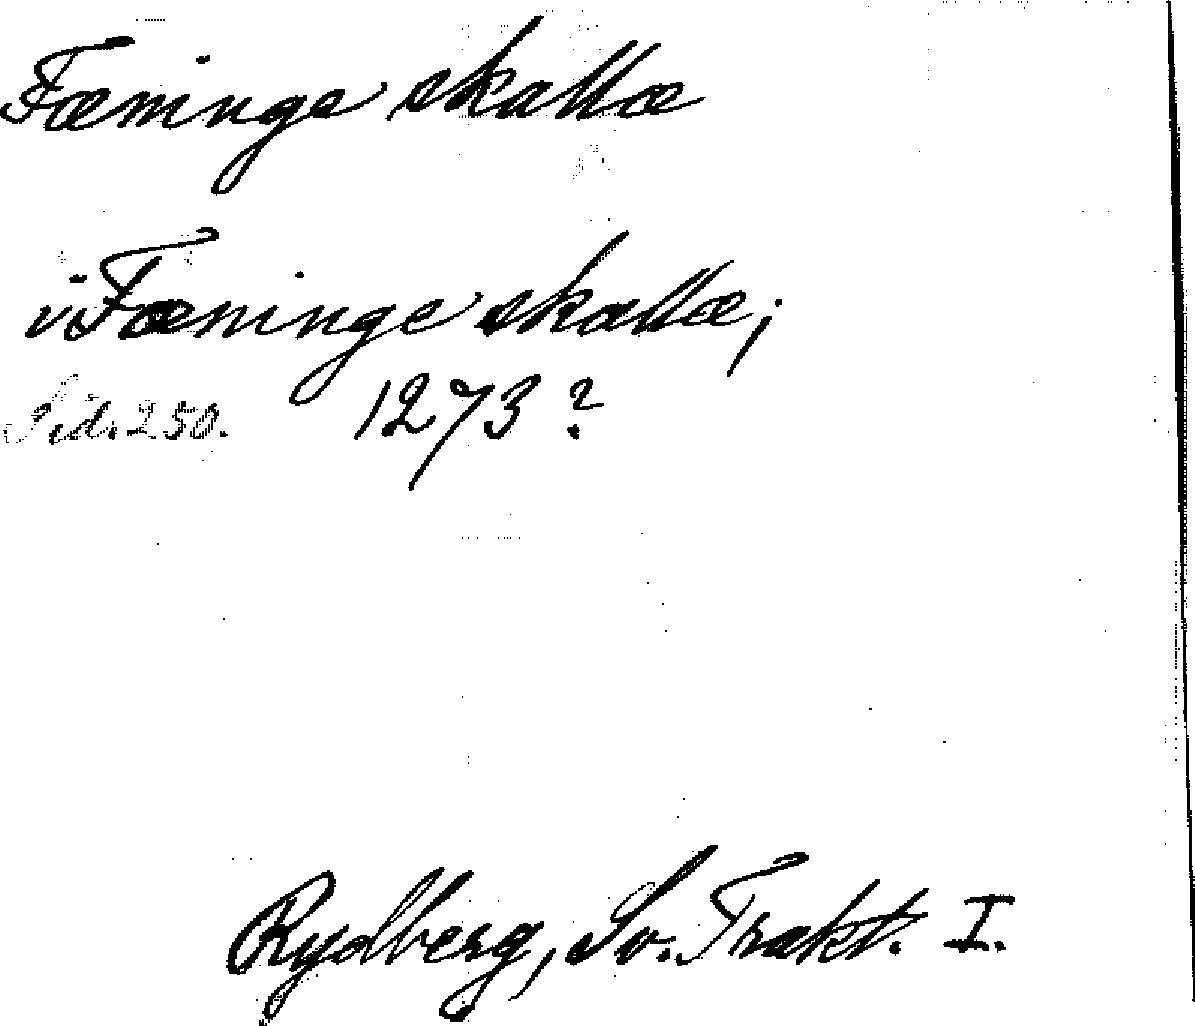 Fæninge skallæ
i Fæninge skallæ;
Sid. 250. 1273?
Rydberg, Sv. Trakt. I.